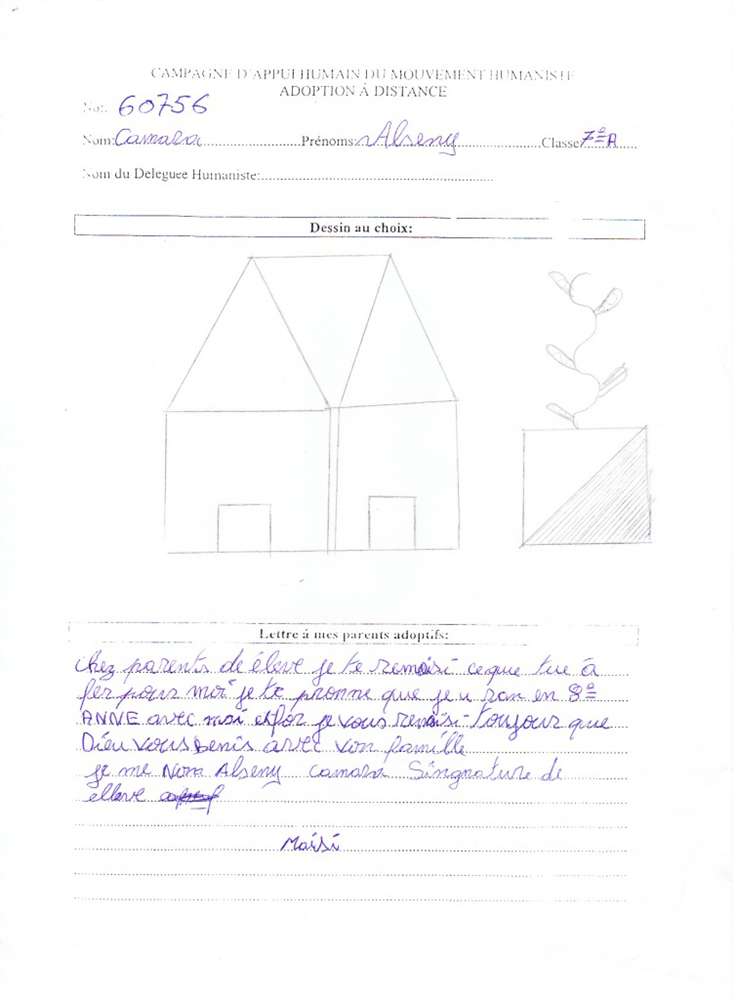 CAMPAGNE D'APPUI HUMAIN DU MOUVEMENT HUMANISTE
ADOPTION À DISTANCE
No: 60756
Nom: Camara Prénoms: Alseny Classe 7è A
Nom du Deleguee Humaniste:
Dessin au choix:
Lettre à mes parents adoptifs:
chez parents de éleve je te remaisi ceque tue à
fer pour moi je te pronne que je u ran en 8è
ANNE avec moi effor je vous remaisi toujour que
Dieu vous benis avec von famille
je me Nom Alseny camara Singnature de
elleve
Maisi